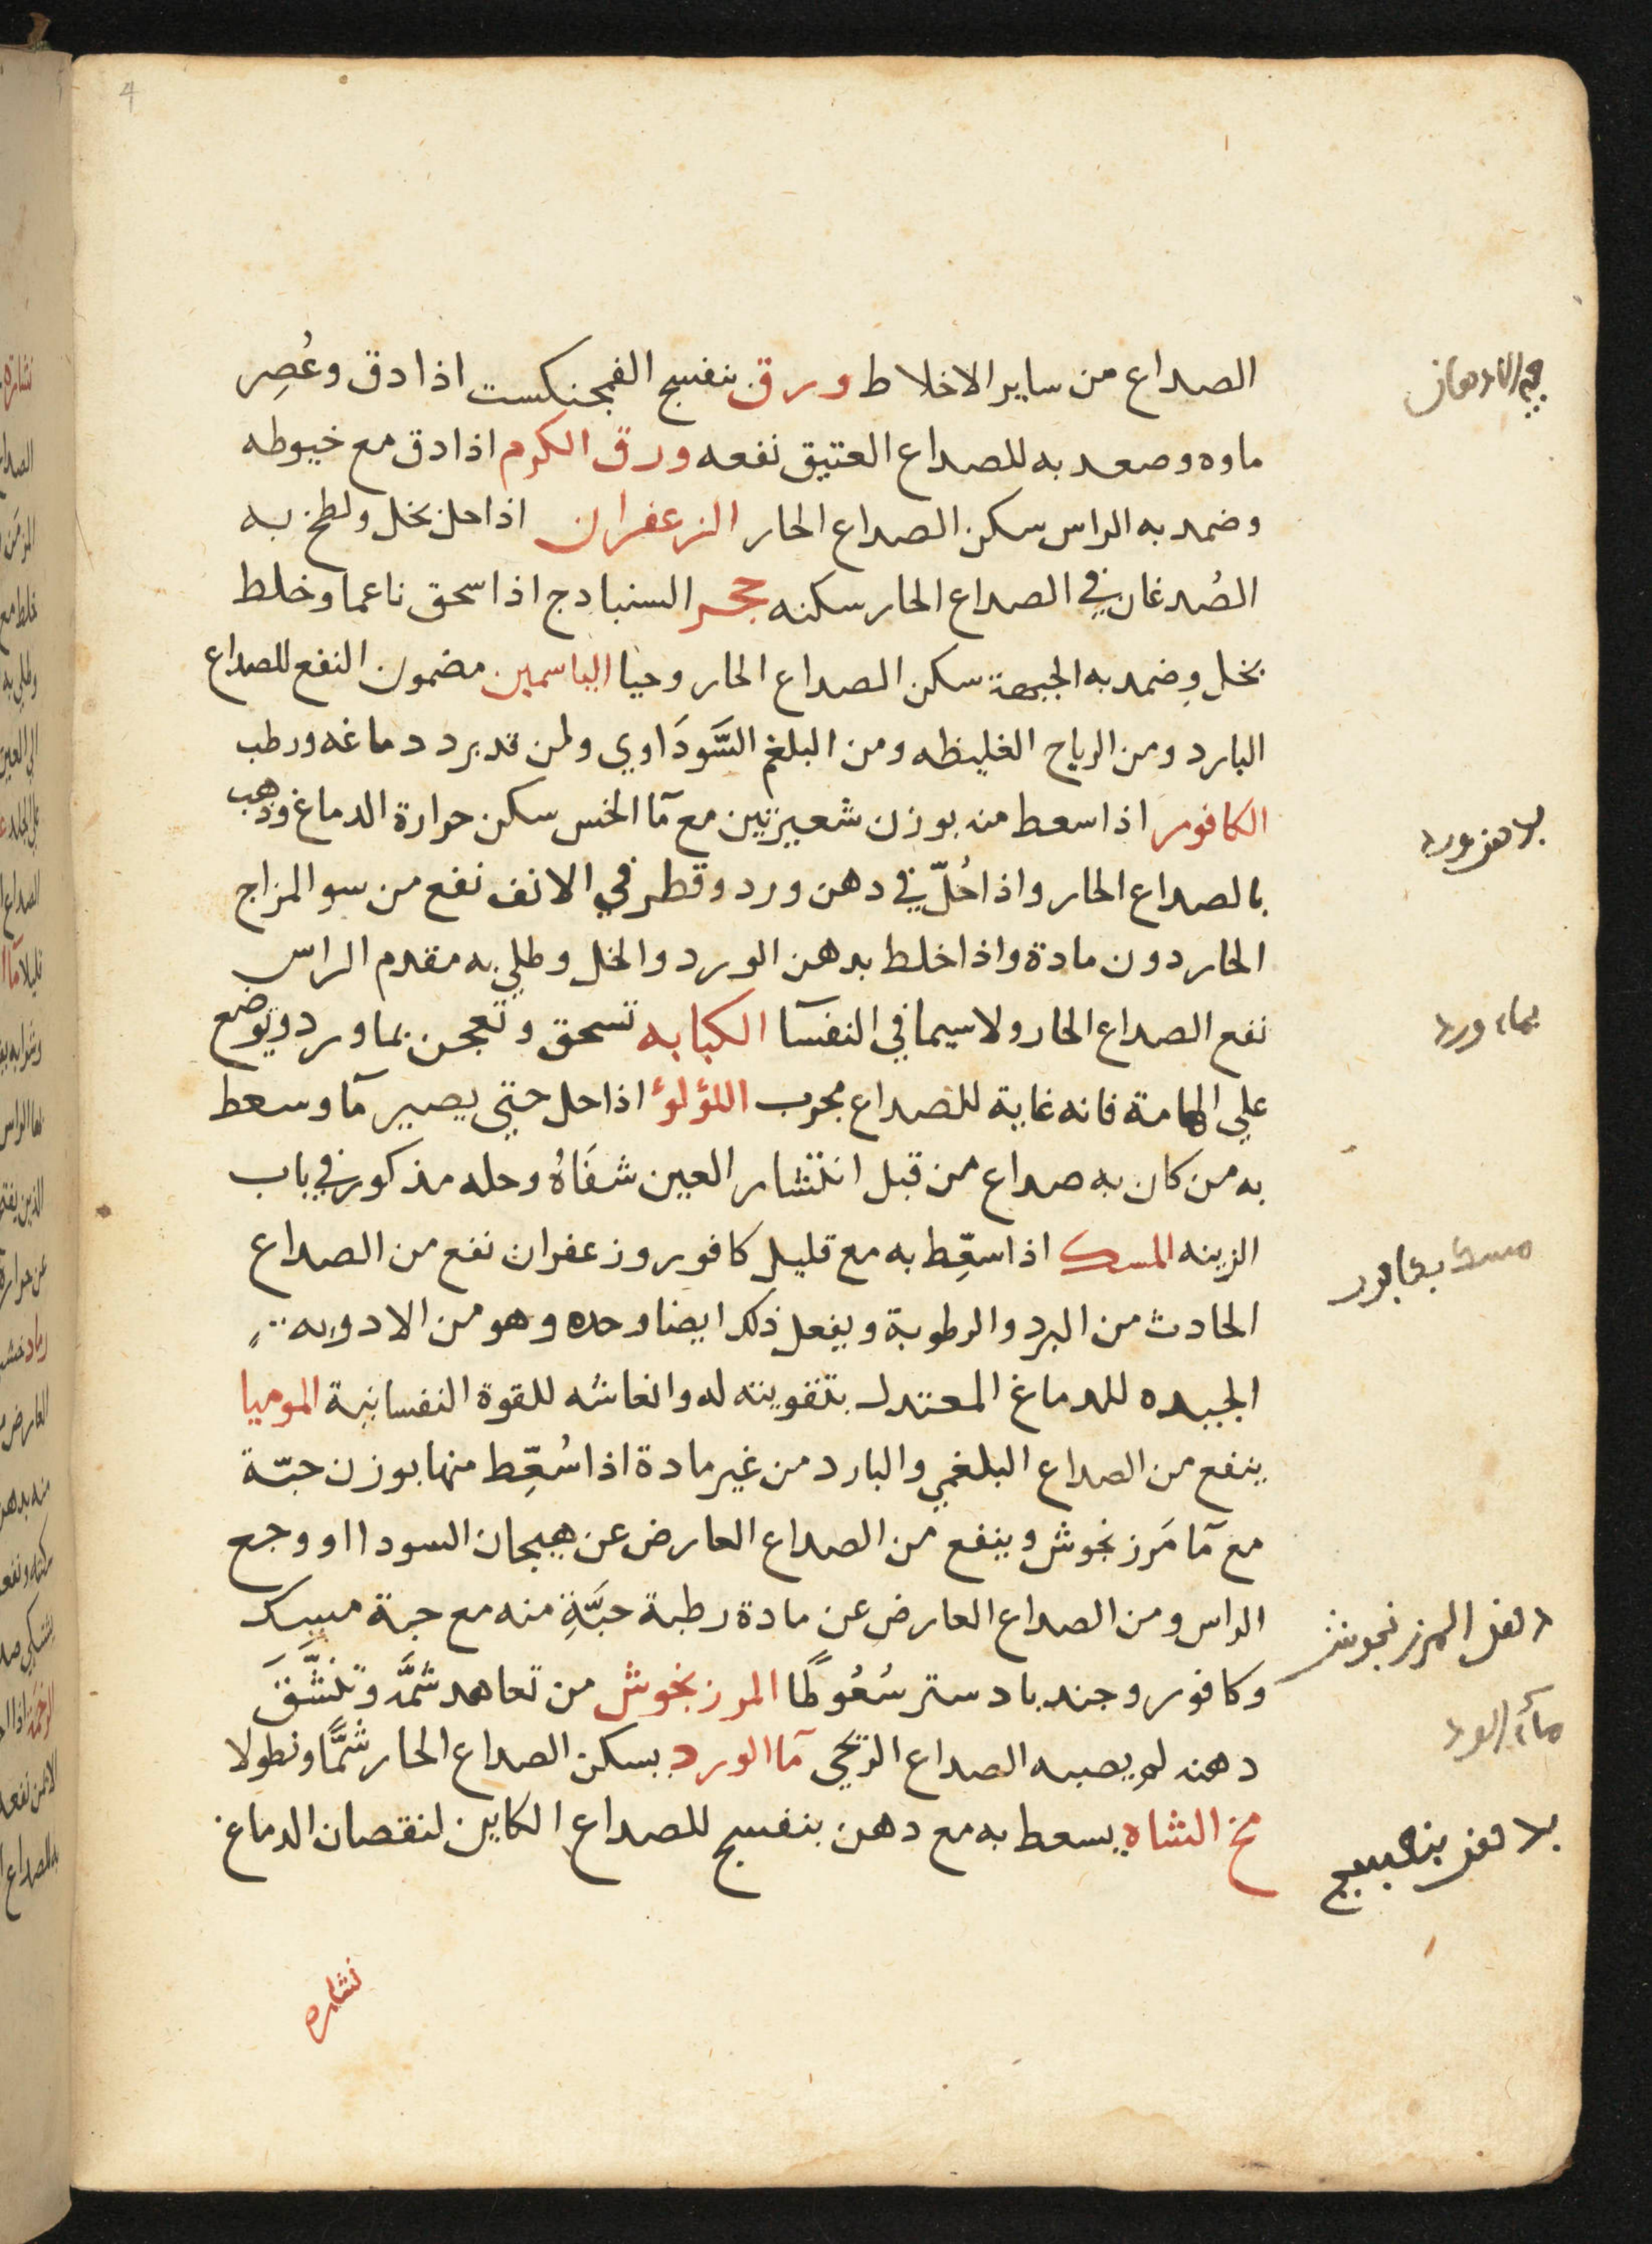 4
الصداع من ساير الاخلاط ورق بنفسج الفنجنكست اذا دق وعُصِر
ماوه وصعد به للصداع العتيق نفعه ورق الكرم اذا دق مع خيوطه
وضمد به الراس سكن الصداع الحار الزعفران اذا حل بخل ولطخ به
الصُدغان في الصداع الحار سكنه حجر السنبادج اذا سحق ناعما وخلط
بخل وضمد به الجبهة سكن الصداع الحار وحيا الياسمين مضمون النفع للصداع
البارد ومن الرياح الغليظه ومن البلغم السَّودَاوي ولمن قد برد دماغه ورطب
الكافور اذا سعط منه بوزن شعيرتين مع مآ الخس سكن حرارة الدماغ وذهب
بالصداع الحار واذا حُلّ في دهن ورد وقطر في الانف نفع من سو المزاج
الحار دون مادة واذا خلط بدهن الورد والخل وطلي به مقدم الراس
نفع الصداع الحار ولا سيما في النفسآ الكبابه تسحق وتعجن بماورد ويوضع
علي الهامة فانه غاية للصداع مجرب اللؤلؤ اذا حل حتي يصير مآ وسعط
به من كان به صداع من قبل انتشار العين شفَاهُ وحله مذكور في باب
الزينه المسك اذا سعِّط به مع قليل كافور وزعفران نفع من الصداع
الحادث من البرد والرطوبة ويفعل ذلك ايضا وحده وهو من الادويه
الجيده للدماغ المعتدل بتقويته له وانعاشه للقوة النفسانية الموميا
ينفع من الصداع البلغمي والبارد من غير مادة اذا سُعِّط منها بوزن حبّة
مع مآ مَرزنجوش وينفع من الصداع العارض عن هيجان السودا او وجع
الراس ومن الصداع العارض عن مادة رطبة حبَّةٍ منه مع حبة مسك
وكافور وجندبادستر سُعُوطًا المرزنجوش من تعاهد شمَّه وتنشَّقَ
دهنه لم يصبه الصداع الريحي مآ الورد يسكن الصداع الحار شمًّا ونطولا
مخ الشاه يسعط به مع دهن بنفسج للصداع الكاين لنقصان الدماغ
نشاره
بدهن ورد
بماء ورد
دهن المرزنجوش
ماء الورد